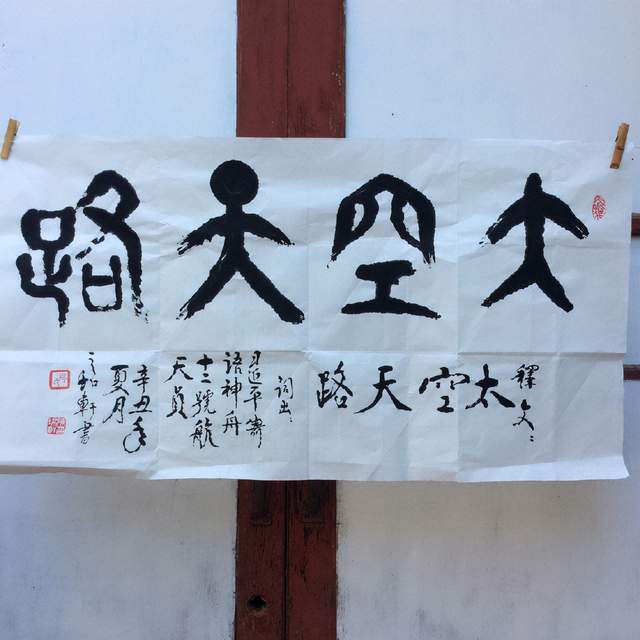 太空天路
釋文:
太空天路
詞出:
习近平寄
语神舟
十二號航
天員
辛丑年
夏月
軒書